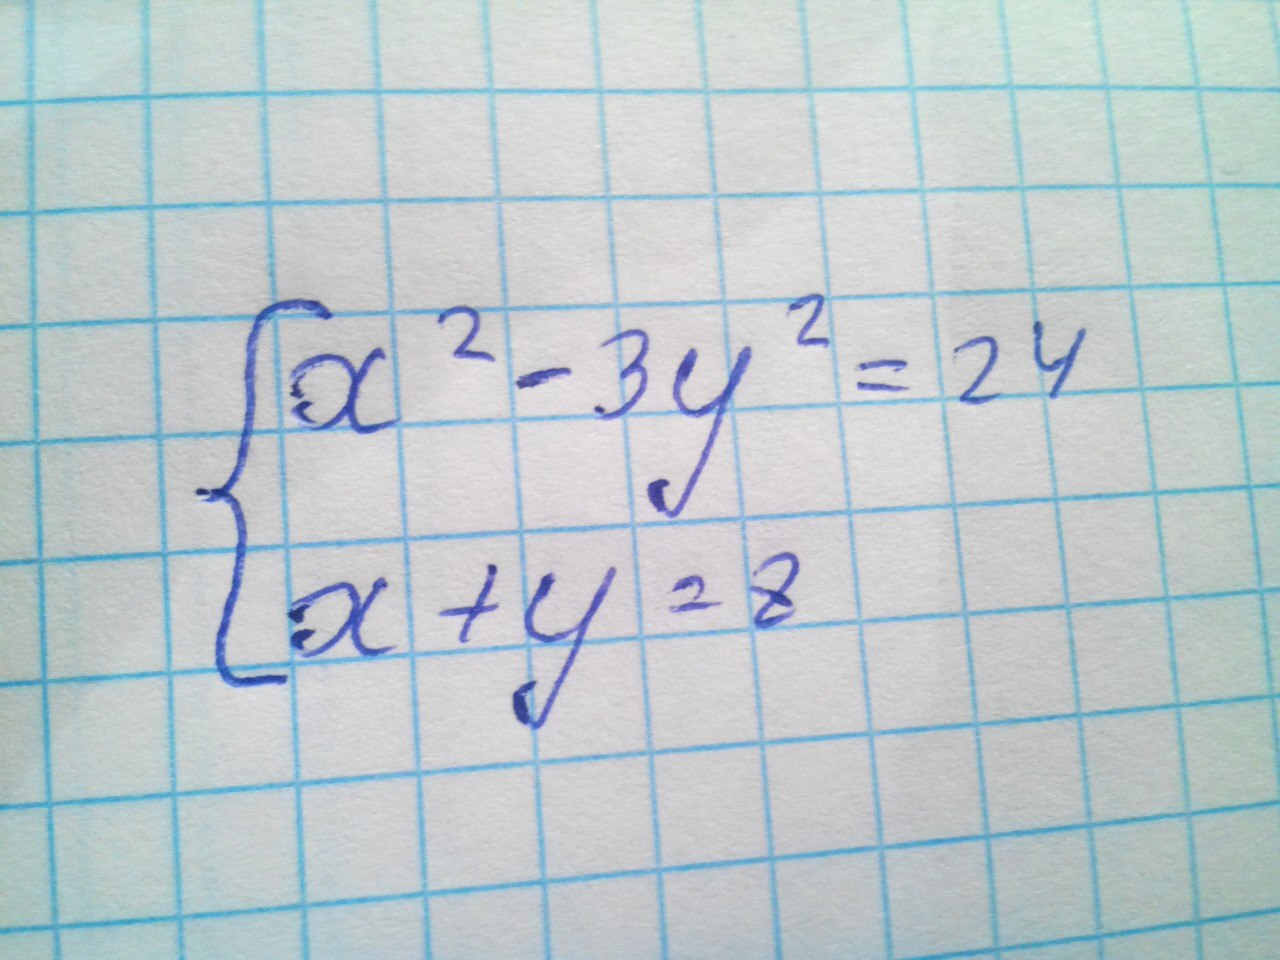 x² - 3y² = 24
x + y = 8